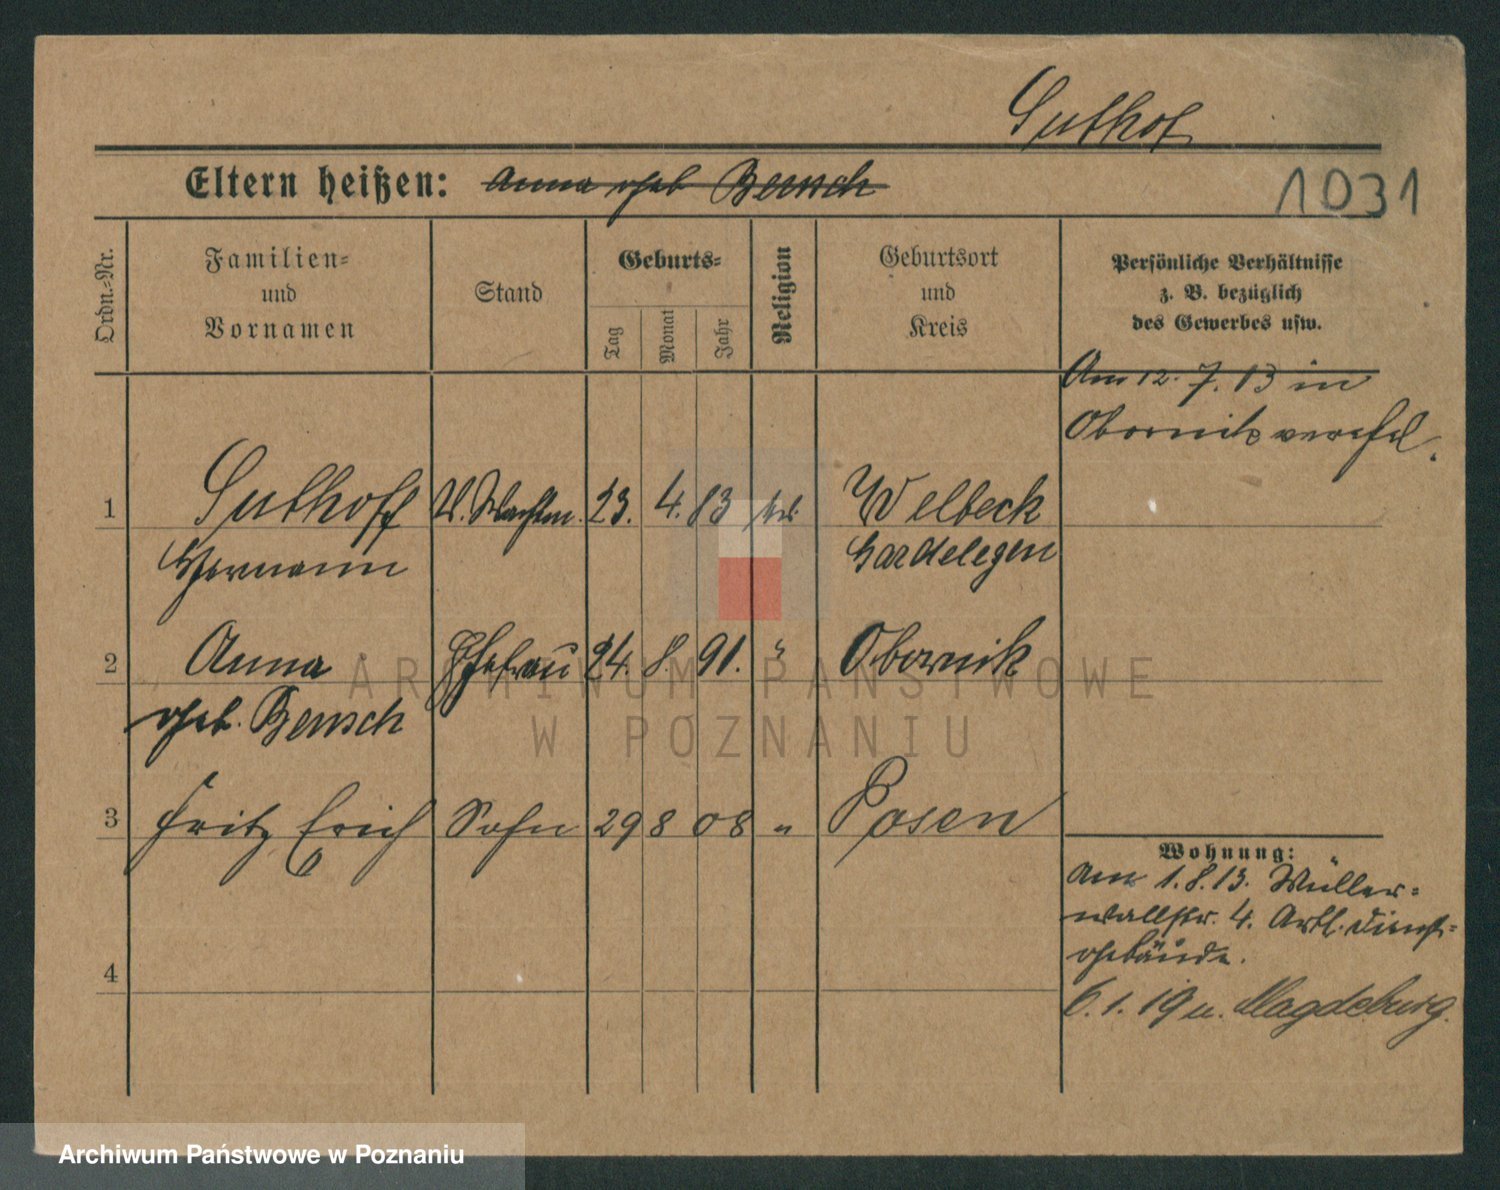 Suthof
Eltern heißen: Anna geb Bensch
1031
Ordn.=Nr.
Familien=
und
Vornamen
Stand
Geburts=
Tag
Monat
Jahr
Religion
Geburtsort
und
Kreis
Persönliche Verhältnisse
z. B. bezüglich
des Gewerbes usw.
Am 12. 7. 13 in
Obornik verehel.
1 Suthoff V. Wachtm. 23. 4. 83 Welbeck
Hermann Gardelegen
2 Anna Ehefrau 24. 8. 91. " Obornik
geb. Bensch
3 Fritz Erich Sohn 29 8 08 " Posen
Wohnung:
Am 1.8.13. Müller=
wallstr. 4. Artl. Dienst=
gebäude.
4
6.1.19 n. Magdeburg.
ARCHIWUM PAŃSTWOWE
W POZNANIU
Archiwum Państwowe w Poznaniu